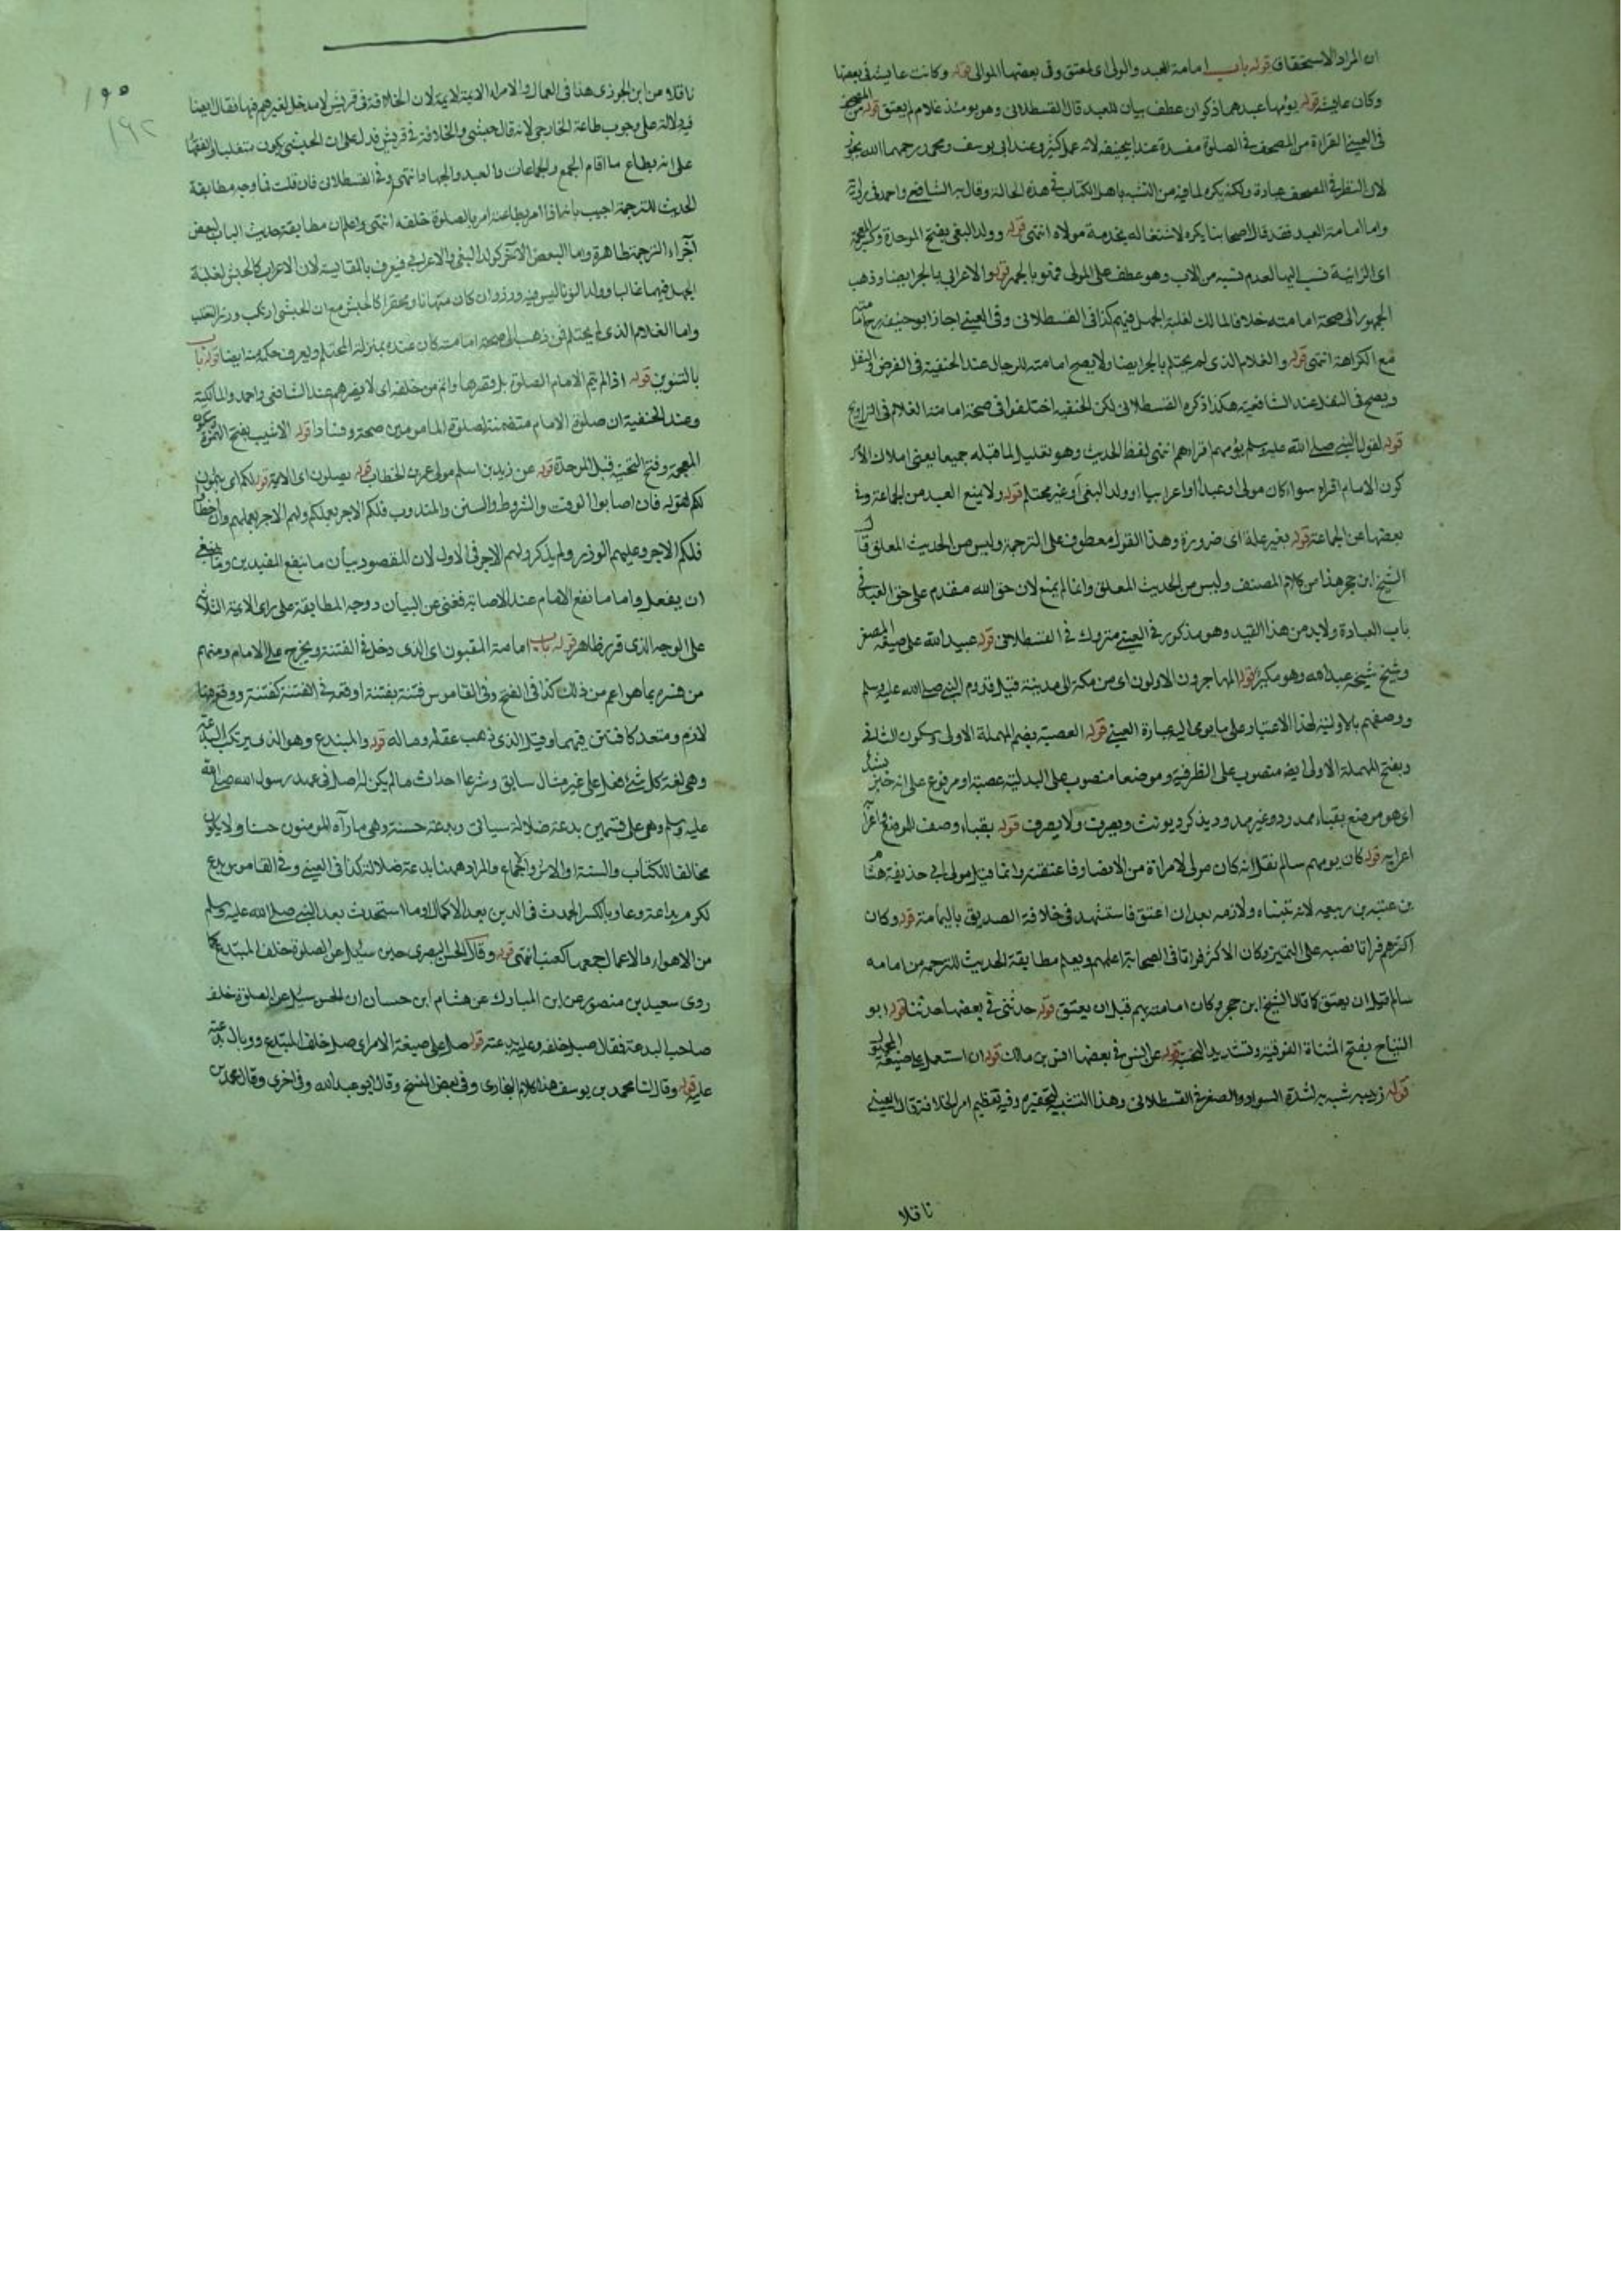 ان المراد الاستحقاق قوله باب امامة العبد والمولى اى المعتق وفى بعضها الموالى قوله وكانت عايشة فى بعضها
وكان عايشة قوله يؤمها عبدها ذكوان عطف بيان للعبد قال القسطلانى وهو يومئذ غلام لم يعتق قوله من المصحف
فى العينى القراءة من المصحف فى الصلوة مفسدة عند ابيحنيفه لانه عمل كثير وعند ابى يوسف ومحمد رحمهما الله يجوز
لان النظر فى المصحف عبادة ولكنه يكره لما فيه من التشبه باهل الكتاب فى هذه الحالة وقال به الشافعى واحمد فى رواية
واما امامة العبد فقد قال اصحابنا يكره لاشتغاله بخدمة مولاه انتهى قوله وولد البغى بفتح الموحدة وكسر المعجمة
اى الزانية نسب اليها لعدم نسبه من الاب وهو عطف على المولى فهو بالجر قوله والاعرابى بالجر ايضا وذهب
الجمهور الى صحة امامته خلافا لمالك لغلبة الجهل فيهم كذا فى القسطلانى وفى العينى اجاز ابو حنيفه رح امامته
مع الكراهة انتهى قوله والغلام الذى لم يحتلم بالجر ايضا ولا يصح امامته للرجال عند الحنفية فى الفرض والنفل
ويصح فى النفل عند الشافعية هكذا ذكره القسطلانى لكن الحنفيه اختلفوا فى صحة امامة الغلام فى التراويح
قوله لقول النبى صلى الله عليه وسلم يؤمهم اقراءهم انتهى لفظ الحديث وهو تعليل لما قبله جميعا يعنى
كون الامام اقراء سواء كان مولى او عبدا او اعرابيا او ولد البغى او غير محتلم قوله ولا يمنع العبد من الجماعة وفى
بعضها عن الجماعة قوله بغير علة اى ضرورة وهذا القول معطوف على الترجمة وليس من الحديث المعلق قال
الشيخ ابن حجر هذا من كلام المصنف وليس من الحديث المعلق وانما لم يمنع لان حق الله مقدم على حق العبد فى
باب العبادة ولابد من هذا القيد وهو مذكور فى العينى متروك فى القسطلانى قوله عبيد الله على صيغة المصغر
وشيخ شيخه عبد الله وهو مكبر قوله المهاجرون الاولون اى من مكة الى مدينة قبل قدوم النبى صلى الله عليه وسلم
ووصفهم بالاولية لهذا الاعتبار على ما يومى اليه عبارة العينى قوله العصبة بضم المهملة الاولى وسكون الثانية
وبفتح المهملة الاولى ايضا منصوب على الظرفية وموضعا منصوب على البدلية عصبة او مرفوع على انه خبر مبتدأ
اى هو موضع بقباء ممدود وغير ممدود يذكر ويونث ويصرف ولا يصرف قوله بقباء وصف للموضع
قوله كان يومهم سالم نقل انه كان مولى لامراة من الانصار فاعتقته وانما قيل مولى ابى حذيفة هشام
بن عتبه بن ربيعه لانه تبناه ولازمه بعد ان اعتق فاستشهد فى خلافة الصديق باليمامة قوله وكان
اكثرهم قرانا نصبه على التميز وكان الاكثر قرانا فى الصحابة اعلمهم ويعلم مطابقة الحديث للترجمه من امامه
سالم قبل ان يعتق كما قال الشيخ ابن حجر وكان امامته بهم قبل ان يعتق قوله حدثنى فى بعضها حدثنا قوله ابو
التياح بفتح المثناة الفوقية وتشديد التحتية قوله عن انس فى بعضها انس بن مالك قوله ان استعمل على صيغة المجهول
قوله زبيبه شبه به لشدة السواد والصغر فى القسطلانى وهذا التشبيه لتحقيره وفيه تعظيم امر الخلافة قال العينى
ناقلا
ناقلا من ابن الجوزى هذا فى العمال والامراء لا الايمة لان الخلافة فى قريش لا مدخل لغيرهم فيها فقال ايضا
فيه دلالة على وجوب طاعة الخارجى لانه قال حبشى والخلافة فى قريش فدل على ان الحبشى يكون متغلبا والفقهاء
على انه يطاع ما اقام الجمع والجماعات والعيد والجهاد انتهى وفى القسطلانى فان قلت فما وجه مطابقة
الحديث للترجمة اجيب بانه اذا امر بطاعته امر بالصلوة خلفه انتهى واعلم ان مطابقة حديث الباب لبعض
اجزاء الترجمة ظاهرة واما البعض الآخر كولد البغى والاعرابى فيعرف بالمقايسة لان الاعراب كالحبش لغلبة
الجهل فيهما غالبا وولد الزنا ليس فيه وزر وان كان متهانا ومحقرا كالحبش مع ان الحبشى ارتكب وزر التغلب
واما الغلام الذى لم يحتلم فمن ذهب الى صحة امامته كان عنده بمنزلة المحتلم ويعرف حكمه منه ايضا قوله باب
بالتنوين قوله اذا لم يتم الامام الصلوة بل قصرها واتم من خلفه اى لا يضرهم عند الشافعى واحمد والمالكية
وعند الحنفية ان صلوة الامام متضمنة لصلوة المامومين صحة وفسادا قوله الاشيب بفتح الهمزة وسكون
المعجمة وفتح التحتية قبل الموحدة قوله عن زيد بن اسلم مولى عمر بن الخطاب قوله يصلون اى الايمة قوله لكم اى
لكم قوله فان اصابوا الوقت والشروط والسنن والمندوب فلكم الاجر بعملكم ولهم الاجر بعملهم وان اخطأوا
فلكم الاجر وعليهم الوزر ولم يذكر ولهم الاجر فى الاول لان المقصود بيان ما ينفع المقتدين وما ينبغى
ان يفعل واما ما نفع الامام عند الاصابة فغنى عن البيان ووجه المطابقة على راى الايمة الثلاثة
على الوجه الذى قرر ظاهر قوله باب امامة المفتون اى الذى دخل فى الفتنة ويخرج على الامام ومنهم
من فسره بما هو اعم من ذلك كذا فى الفتح وفى القاموس فتنه يفتنه اوقعه فى الفتنة كفتنه
لازم ومتعد كافتتن فيهما وقيل الذى ذهب عقله وماله قوله والمبتدع وهو الذى يرتكب البدعة
وهى لغة كل شئ عمل على غير مثال سابق وشرعا احداث ما لم يكن له اصل فى عهد رسول الله صلى الله
عليه وسلم وهى على قسمين بدعة ضلالة سياتى وبدعة حسنة وهى ما رآه المومنون حسنا ولا يكون
مخالفا للكتاب والسنة او الاثر والاجماع والمراد ههنا بدعة ضلالة كذا فى العينى وفى القاموس بدع
ككرم بداعة وبدوعا وبالكسر الحدث فى الدين بعد الاكمال او ما استحدث بعد النبى صلى الله عليه وسلم
من الاهواء والاعمال جمعها كعنب انتهى قوله وقال الحسن البصرى حين سئل عن الصلوة خلف المبتدع كما
روى سعيد بن منصور عن ابن المبارك عن هشام ابن حسان ان الحسن سئل عن الصلوة خلف
صاحب البدعة فقال صل خلفه وعليه بدعته قوله صل على صيغة الامر اى صل خلف المبتدع ووبال بدعته
عليه قوله وقال لنا محمد بن يوسف هذا كلام البخارى وفى بعض النسخ وقال ابو عبد الله وفى اخرى وقال محمد بن
١٩٢